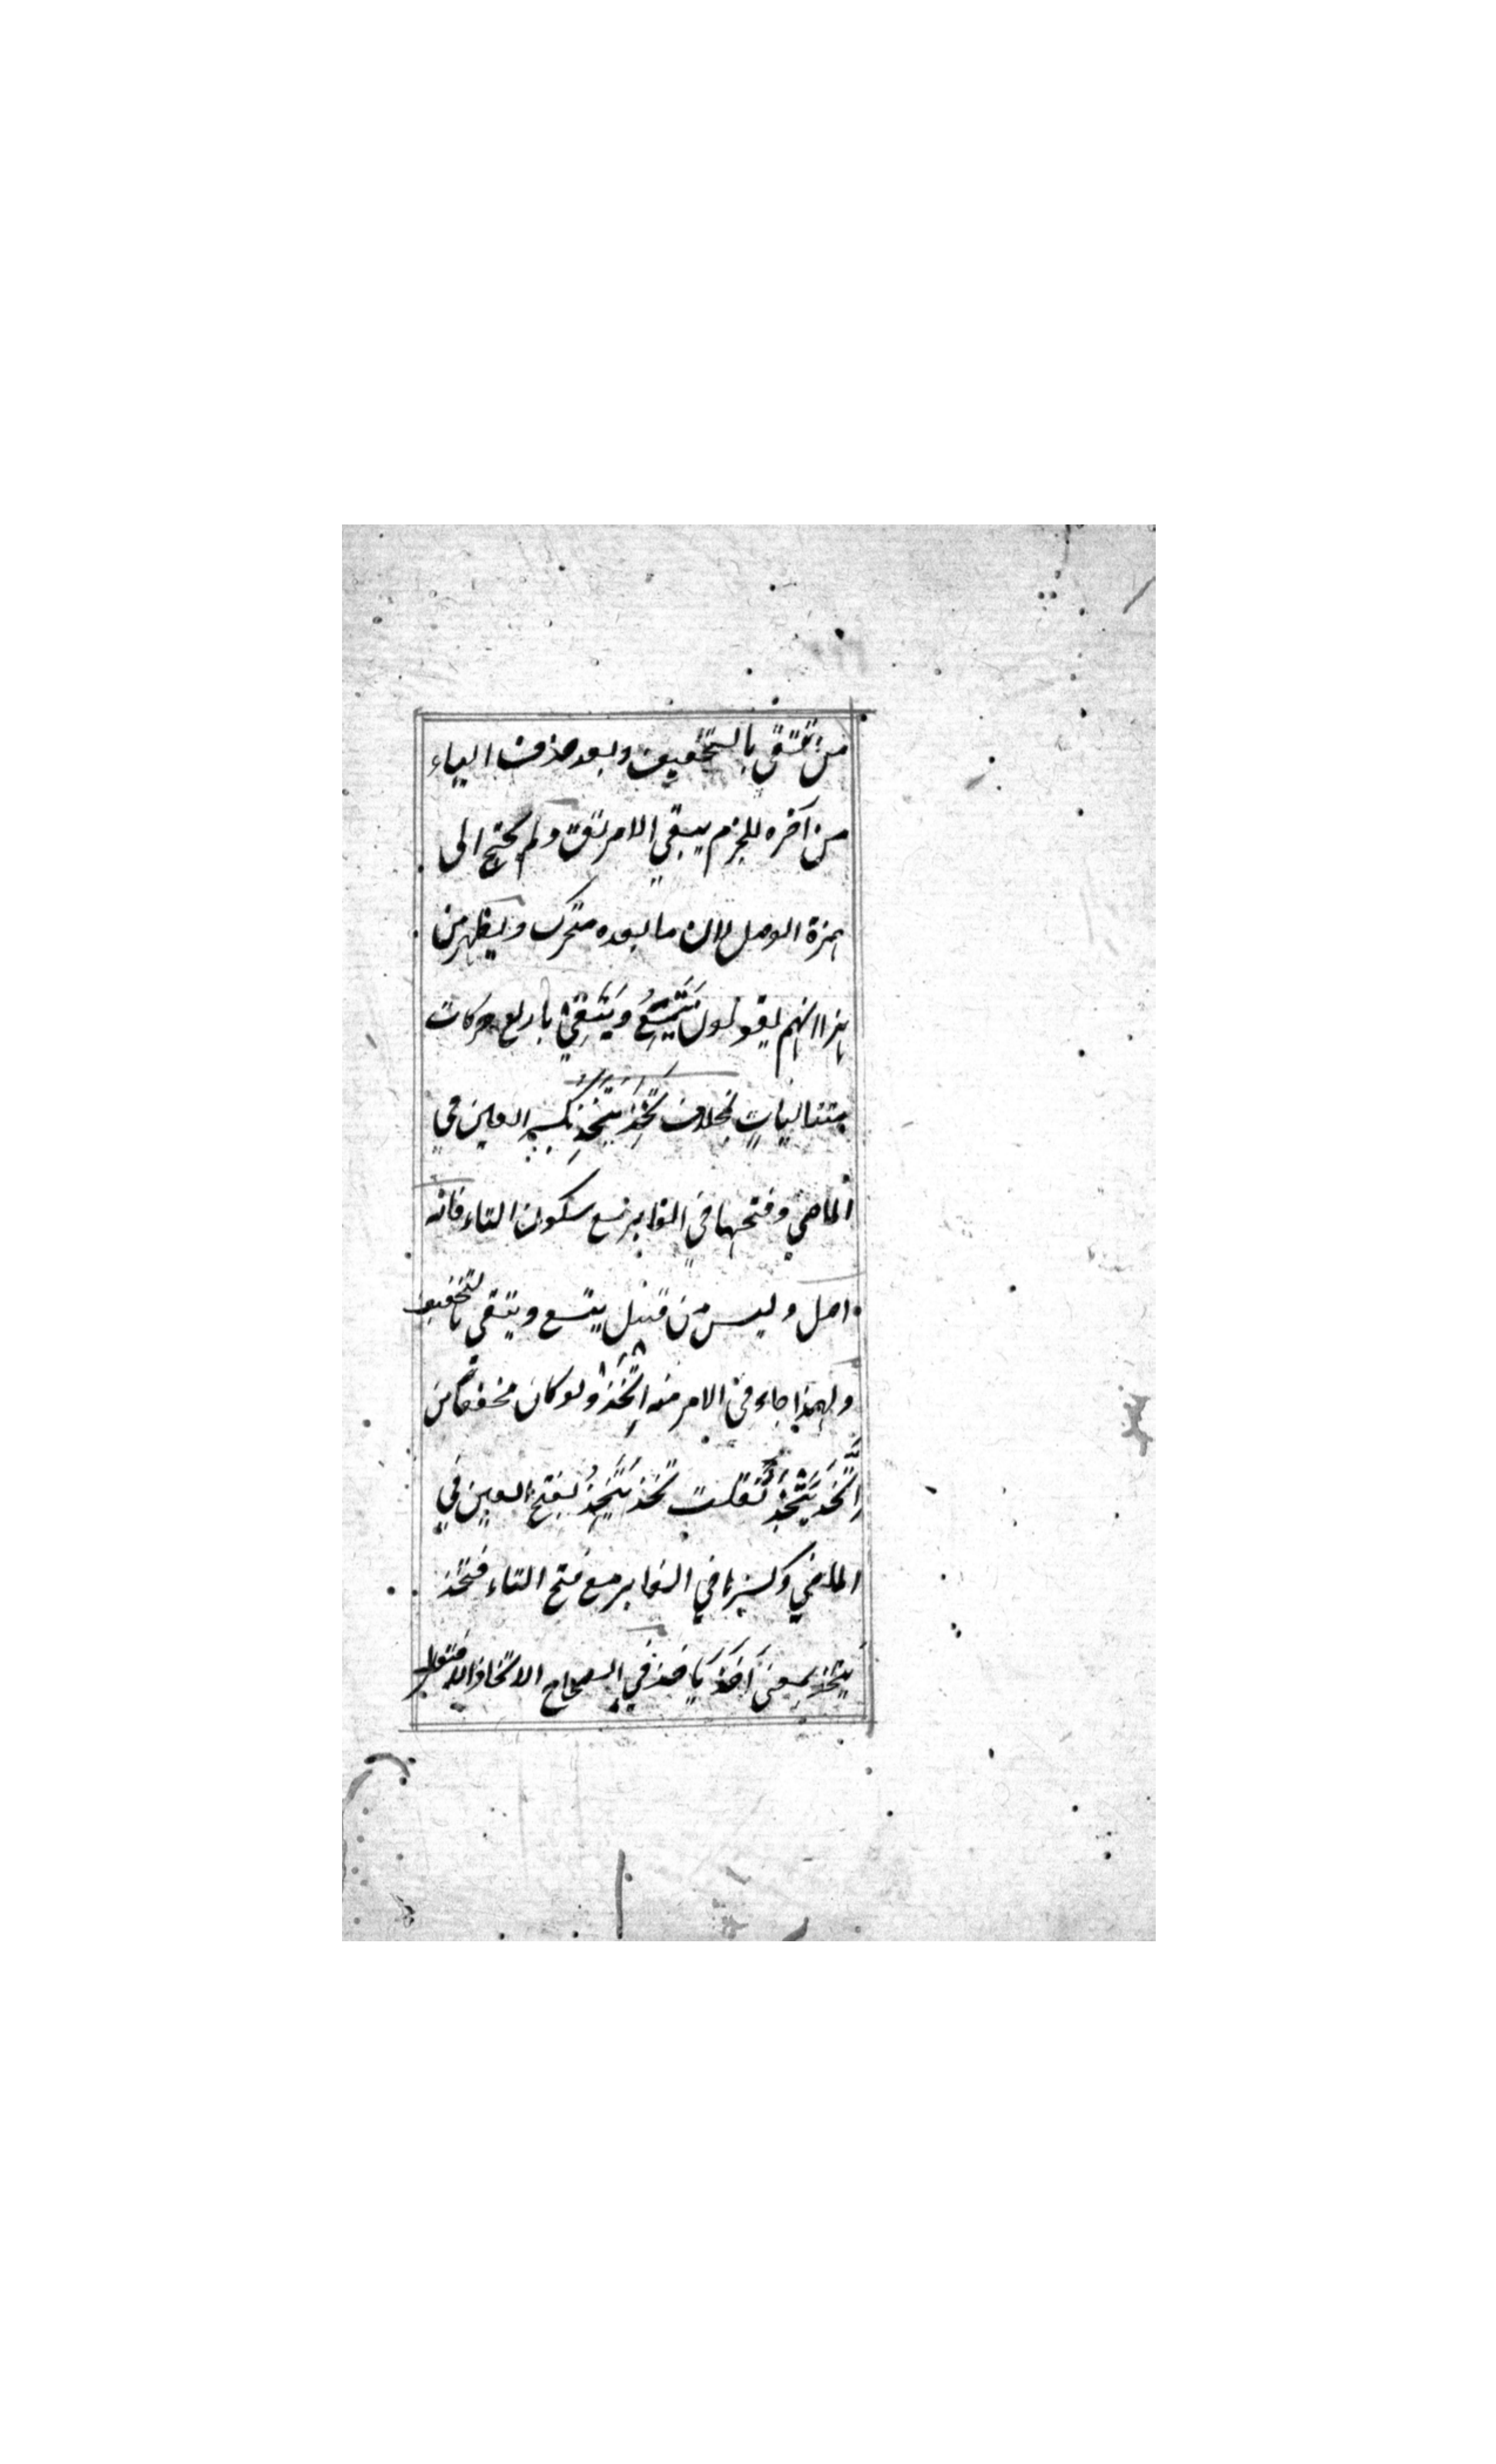 من تتقي بالتخفيف وبعد حذف الياء
من آخره للجزم يبقي الامر تق ولم يحتج الى
همزة الوصل لان ما بعده متحرك ويظهر من
هذا انهم يقولون يَتَسِعُ وَيَتَقِيْ بأربع حركات
متتاليات بخلاف تَخِذَ يَتْخَذُ بكسر العين في
الماضي وفتحها في الغابر مع سكون التاء فانه
اصل وليس من قبيل يتسع ويتقى بالتخفيف
ولهذا جاء في الامر منه اِتْخَذْ ولو كان مخففا من
اِتَّخَذَ يَتَّخِذُ لقلت تَخَذَ يَتَخِذُ بفتح العين في
الماضي وكسرها في الغابر مع فتح التاء فتخذ
يتخذ بمعنى اَخَذَ يَاخذ في الصحاح الاتخاذ افتعال